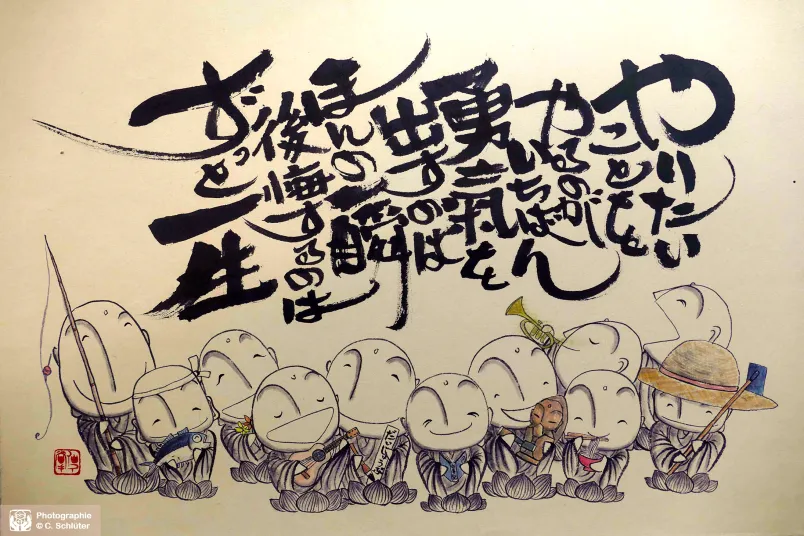 やりたい
ことを
やるのが
いちばん
勇氣を
出すのは
ほんの
一瞬
後悔するのは
ずっと
一生
Photographie
© C. Schlüter